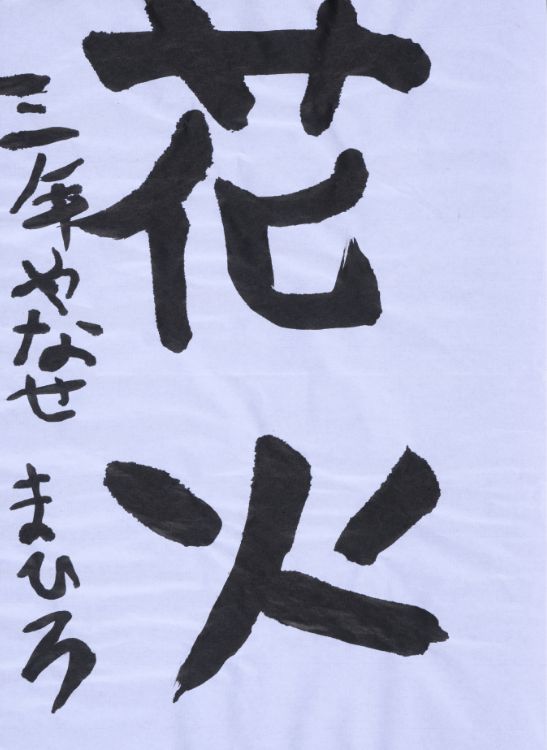 花火
三年やなせまひろ